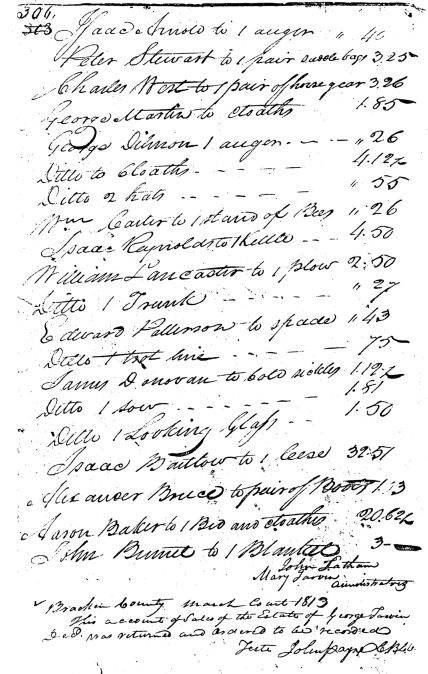 306.
303
Isaac Arnold to 1 auger " 40
Peter Stewart to 1 pair saddle bags 3.25
Charles West to 1 pair of horse gear 3.26
George Martin to cloaths 1.85
George Dilmon 1 auger - - - " 26
Ditto to Cloaths - - - - 4.12½
Ditto 2 hats - - - - " 55
Wm Carter to 1 stand of Bees " 26
Isaac Raynolds to 1 Kettle - - - 4.50
William Lancaster to 1 plow 2.50
Ditto 1 Trunk - - - - - " 27
Edward Patterson to spade " 43
Ditto 1 hoe - - - - 75
James Donovan to 6 old sickles 1.12½
Ditto 1 sow - - - - - 1.81
Ditto 1 Looking Glass - - 1.50
Isaac Bartlow to 1 32.51
Alexander Bruce to pair of Boots 1.13
Aaron Baker to 1 Bed and cloathes 20.62½
John Bunnel to 1 Blanket 3 -
John Latham
Mary
Administrators
Bracken County March Court 1813
This account of Sales of the Estate of George
Decd. was returned and ordered to be recorded
Teste John Payne